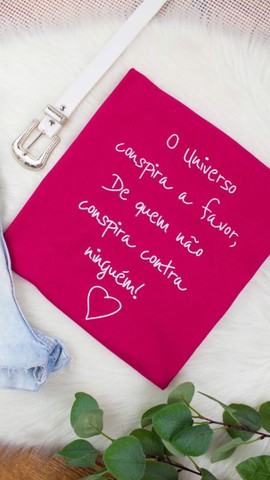 O Universo
conspira a favor,
De quem não
conspira contra
ninguém!